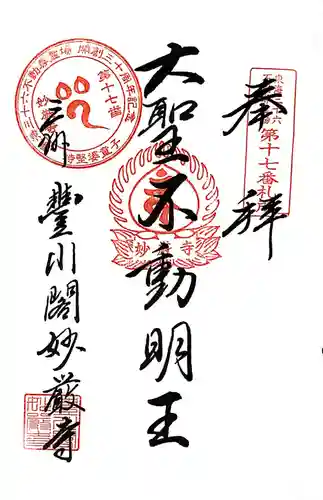 奉拝
第十七番札所
大聖不動明王
妙厳寺
三州
豐川閣妙厳寺
三十六不動尊霊場 開創三十周年記念
第十七番